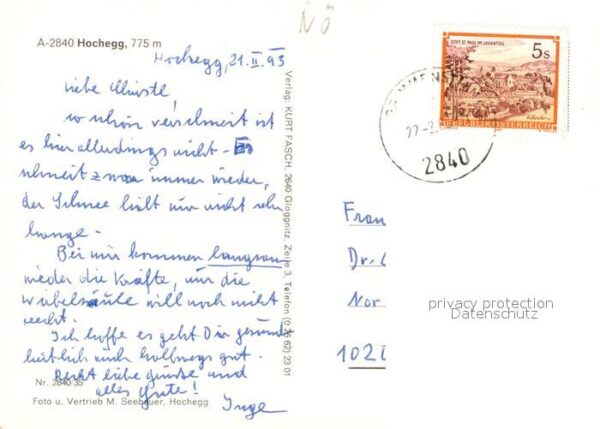 NÖ
A-2840 Hochegg, 775 m
Hochegg, 21. II. 93
Liebe Christl,
so schön verschneit ist
es hier allerdings nicht - Es
schneit zwar immer wieder,
der Schnee hält nur nicht sehr
lange.
Bei mir kommen langsam
wieder die Kräfte, nur die
Wirbelsäule will noch nicht
recht.
Ich hoffe es geht Dir gesund-
heitlich auch halbwegs gut.
Recht liebe Grüße und
alles Gute!
Inge
Nr. 2840-35
Foto u. Vertrieb M. Seebauer, Hochegg
Verlag: KURT FASCH, 2640 Gloggnitz, Zeile 3, Telefon (0 26 62) 23 01
STIFT ST. PAUL IM LAVANTTAL
5s
REPUBLIK ÖSTERREICH
2840
Frau
Dr.
Nor
102
privacy protection
Datenschutz